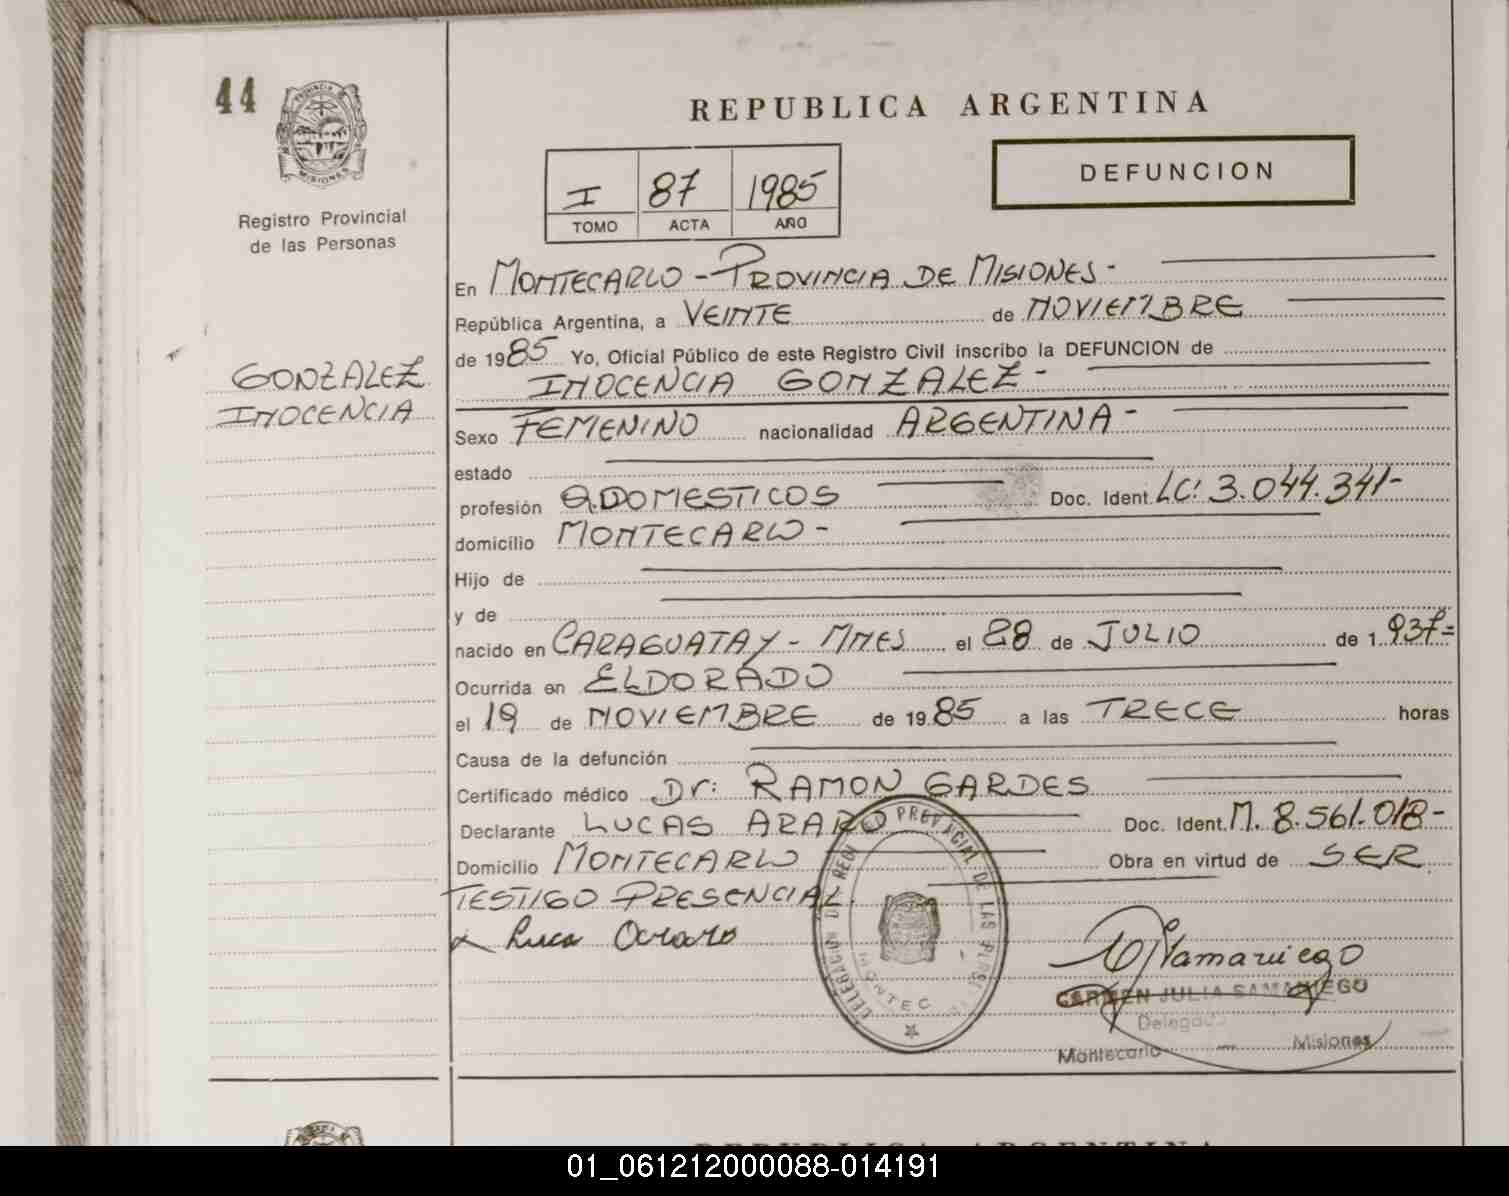 44
PROVINCIA DE
MISIONES
Registro Provincial
de las Personas
GONZALEZ
INOCENCIA
REPUBLICA ARGENTINA
I 87 1985
TOMO ACTA AÑO
DEFUNCION
En MONTECARLO - PROVINCIA DE MISIONES -
República Argentina, a VEINTE de NOVIEMBRE
de 1985 Yo, Oficial Público de este Registro Civil inscribo la DEFUNCION de
INOCENCIA GONZALEZ -
Sexo FEMENINO nacionalidad ARGENTINA -
estado
profesión Q.DOMESTICOS Doc. Ident. LC: 3.044.341-
domicilio MONTECARLO -
Hijo de
y de
nacido en CARAGUATAY - MNES el 28 de JULIO de 1.937=
Ocurrida en ELDORADO
el 19 de NOVIEMBRE de 1985 a las TRECE horas
Causa de la defunción
Certificado médico Dr: RAMON GARDES
Declarante LUCAS ARARO Doc. Ident. M. 8.561.018-
Domicilio MONTECARLO Obra en virtud de SER
TESTIGO PRESENCIAL.
DELEGACION DEL REGISTRO PROVINCIAL DE LAS
MONTEC
CARMEN JULIA SAMANIEGO
Delegado
Montecarlo - Misiones
REPUBLICA ARGENTINA
01_061212000088-014191